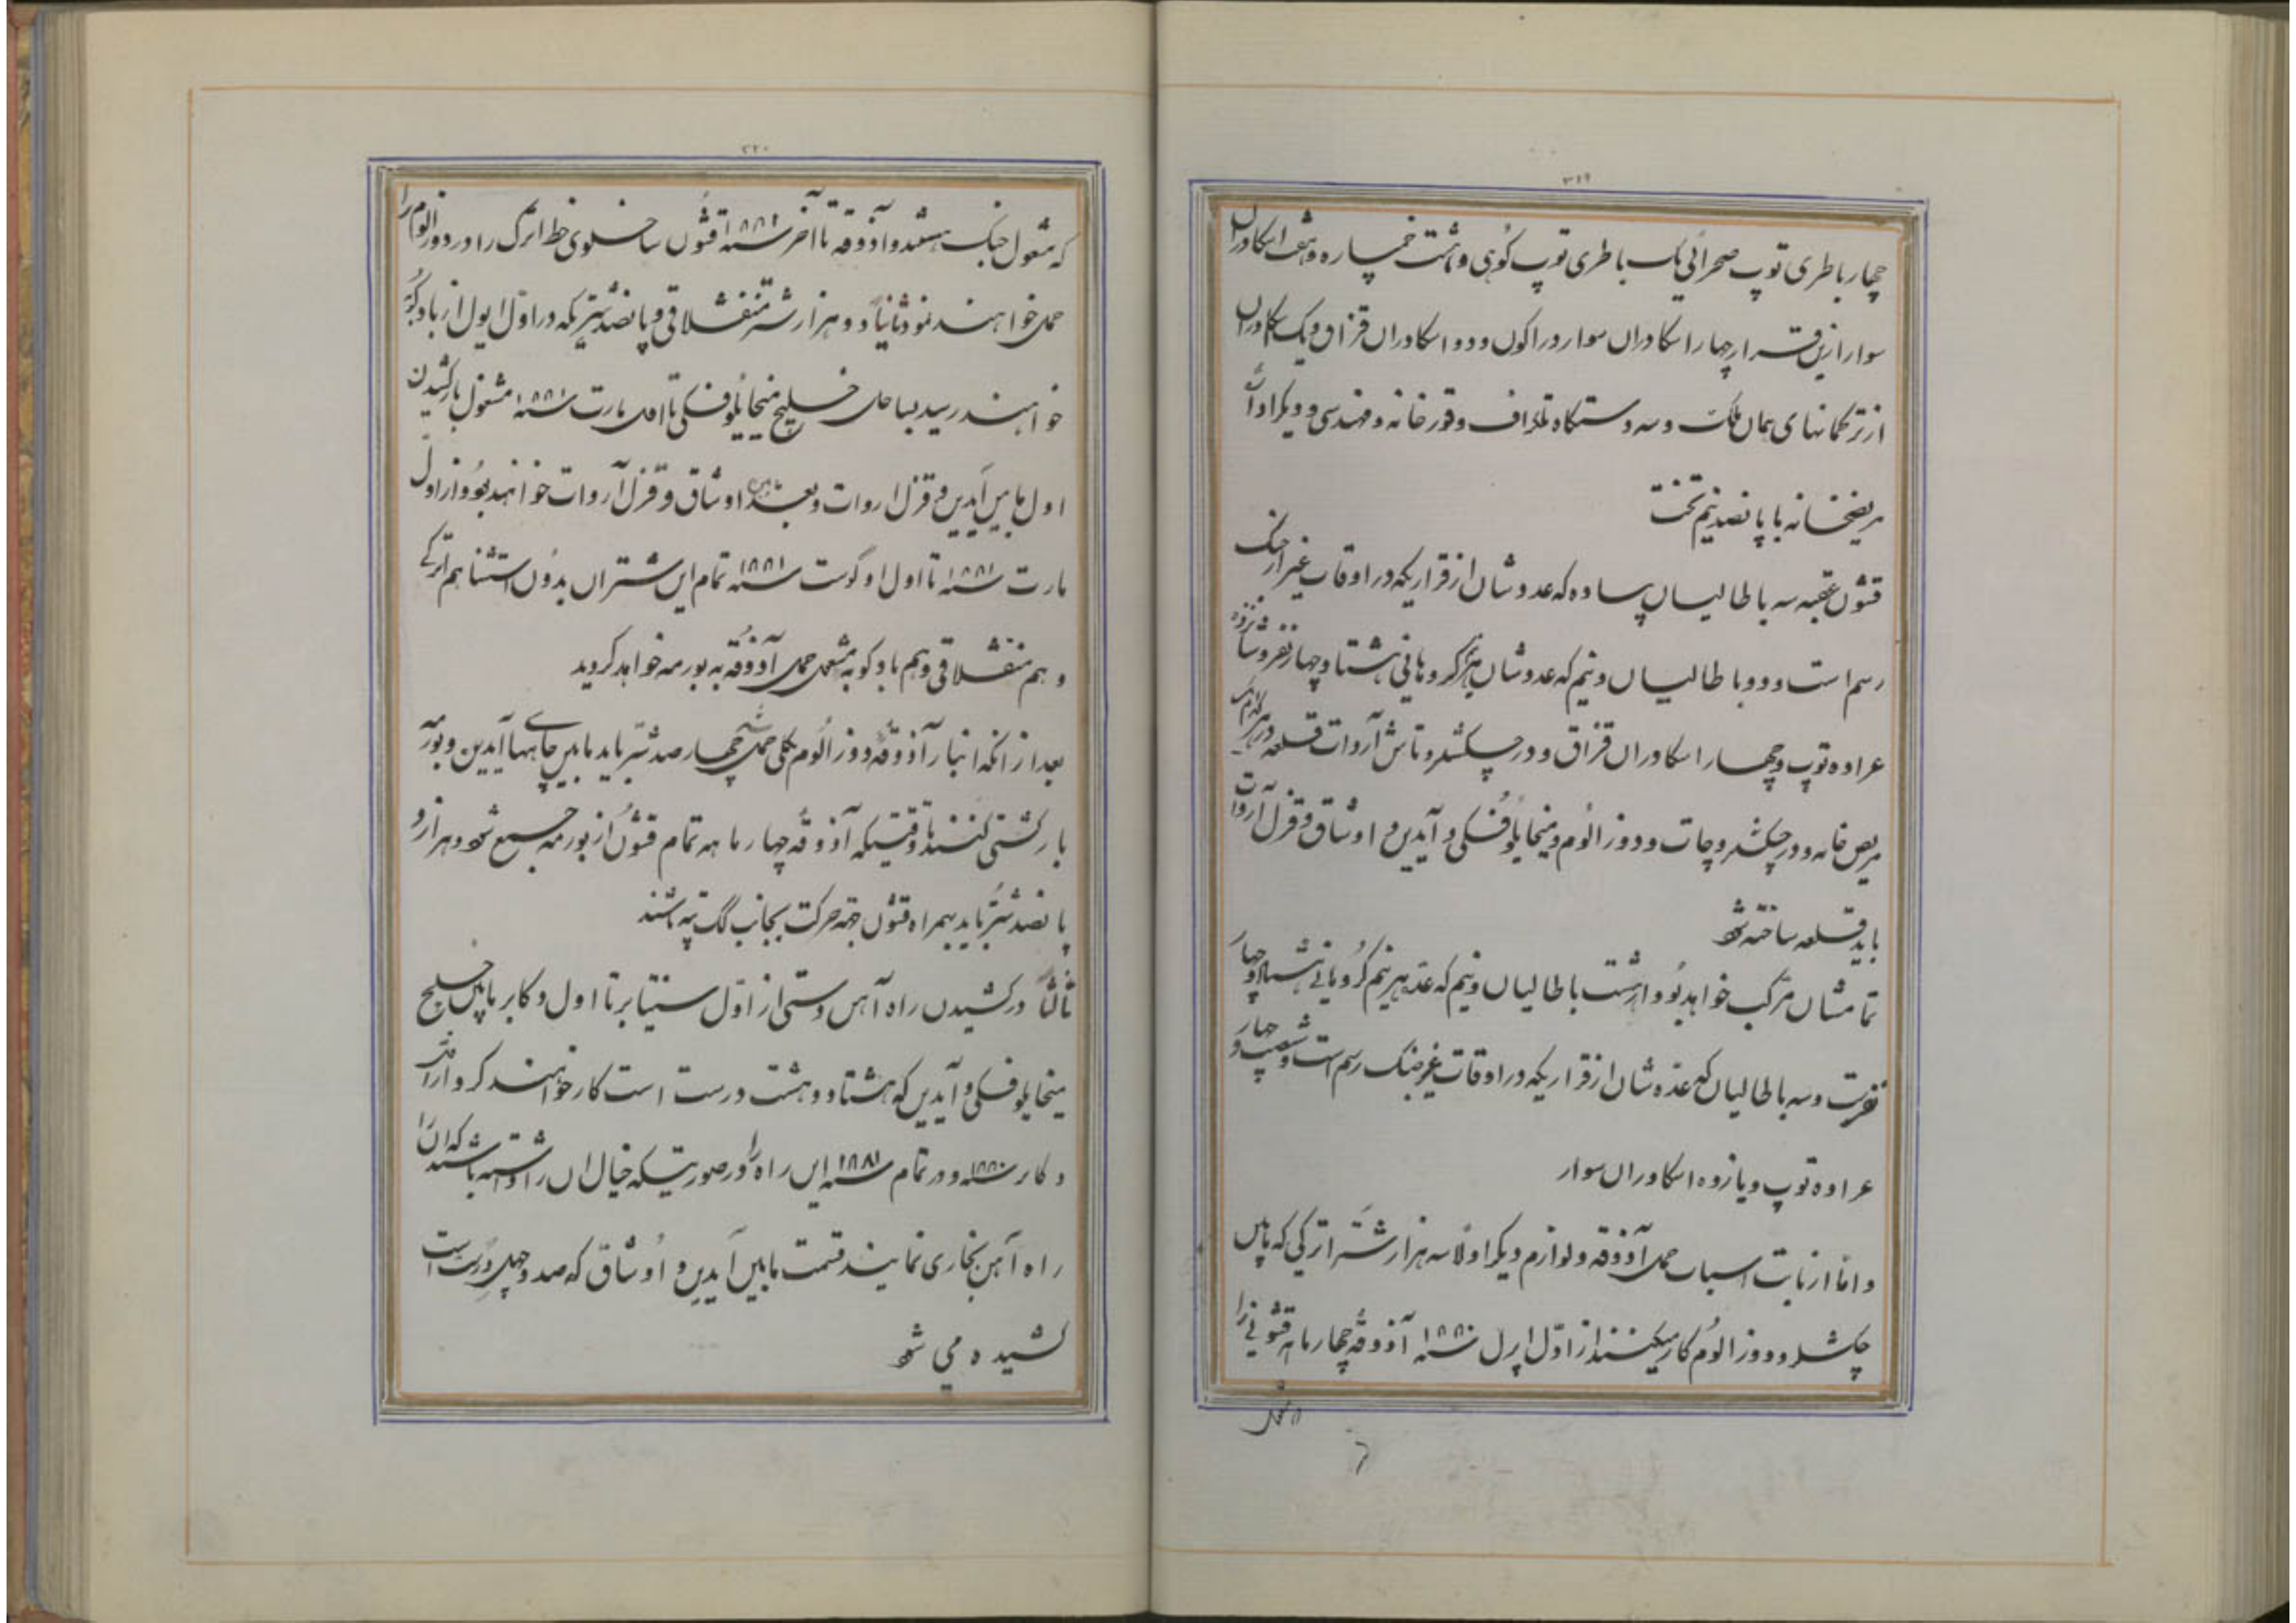 ۳۱۹
چهار باطری توپ صحرائی یک باطری توپ کوهی و هشت خمپاره و هفت اسکادران
سوار ازین قرار چهار اسکادران سوار دراکون و دو اسکادران قزاق و یک اسکادران
از ترکمانهای همان مملکت و سه دستگاه تلغراف و قورخانه و مهندسی و دیگر ادوات
مریضخانه با پانصد نیم تخت
قشون عقبه سه باطالیان پیاده که عددشان از قراریکه در اوقات غیر از جنگ
رسم است و دو باطالیان و نیم که عددشان هر نیم کروهانی هشتاد و چهار نفر و شانزده
عراده توپ و چهار اسکادران قزاق و در چکشلر و تاش آروات قلعه در هر کدام یک
مریض خانه و در چکشلر و چات و دوز الوم و میخایلوفسکی و آیدین و اوشاق و قزل آروات
باید قلعه ساخته شود
تمامشان مرکب خواهد بود از هشت باطالیان و نیم که عده هر نیم کروهانی هشتاد و چهار
نفر است و سه باطالیان که عده شان از قراریکه در اوقات غیر جنگ رسم است و شصت و چهار
عراده توپ و یازده اسکادران سوار
و اما از بابت اسباب حمل آذوقه و لوازم دیگر اولا سه هزار شتر اترکی که مابین
چکشلر و دوز الوم کار میکنند از اول اپرل سنه ۱۸۸۰ آذوقه چهار ماهه قشونی را
۳۲۰
که مشغول جنگ هستند و آذوقه تا آخر سنه ۱۸۸۱ قشون ساخلوی خط اترک را در دوز الوم را
حمل خواهند نمود ثانیاً دو هزار شتر منقشلاقی و پانصد شتریکه در اول ایول از بادکوبه
خواهند رسید بساحل خلیج میخایلوفسکی تا اول مارت سنه ۱۸۸۱ مشغول بارکشیدن
اول مابین آیدین و قزل اروات و بعد مابین اوشاق و قزل آروات خواهند بود و از اول
مارت سنه ۱۸۸۱ تا اول اوگوست سنه ۱۸۸۱ تمام این شتران بدون استثنا هم اترکی
و هم منقشلاقی و هم بادکوبه مشغول حمل آذوقه به بورمه خواهد گردید
بعد از آنکه انبار آذوقه دوز الوم کلی حمل شد چهار صد شتر باید مابین چاههای آیدین و بورمه
بارکشی کنند تا وقتیکه آذوقه چهار ماهه تمام قشون از بورمه جمع شود و هزار و
پانصد شتر باید بهمراه قشون جهة حرکت بجانب گگ تپه باشند
ثالثاً در کشیدن راه آهن دستی از اول سنتیابر تا اول دکابر مابین خلیج
میخایلوفسکی و آیدین که هشتاد و هشت درست است کار خواهند کرد و از اول
دکابر سنه ۱۸۸۰ و در تمام سنه ۱۸۸۱ این راه را در صورتیکه خیال آن را داشته باشند که آن را
راه آهن بخاری نمایند قسمت مابین آیدین و اوشاق که صد و چهل درست است
کشیده می شود